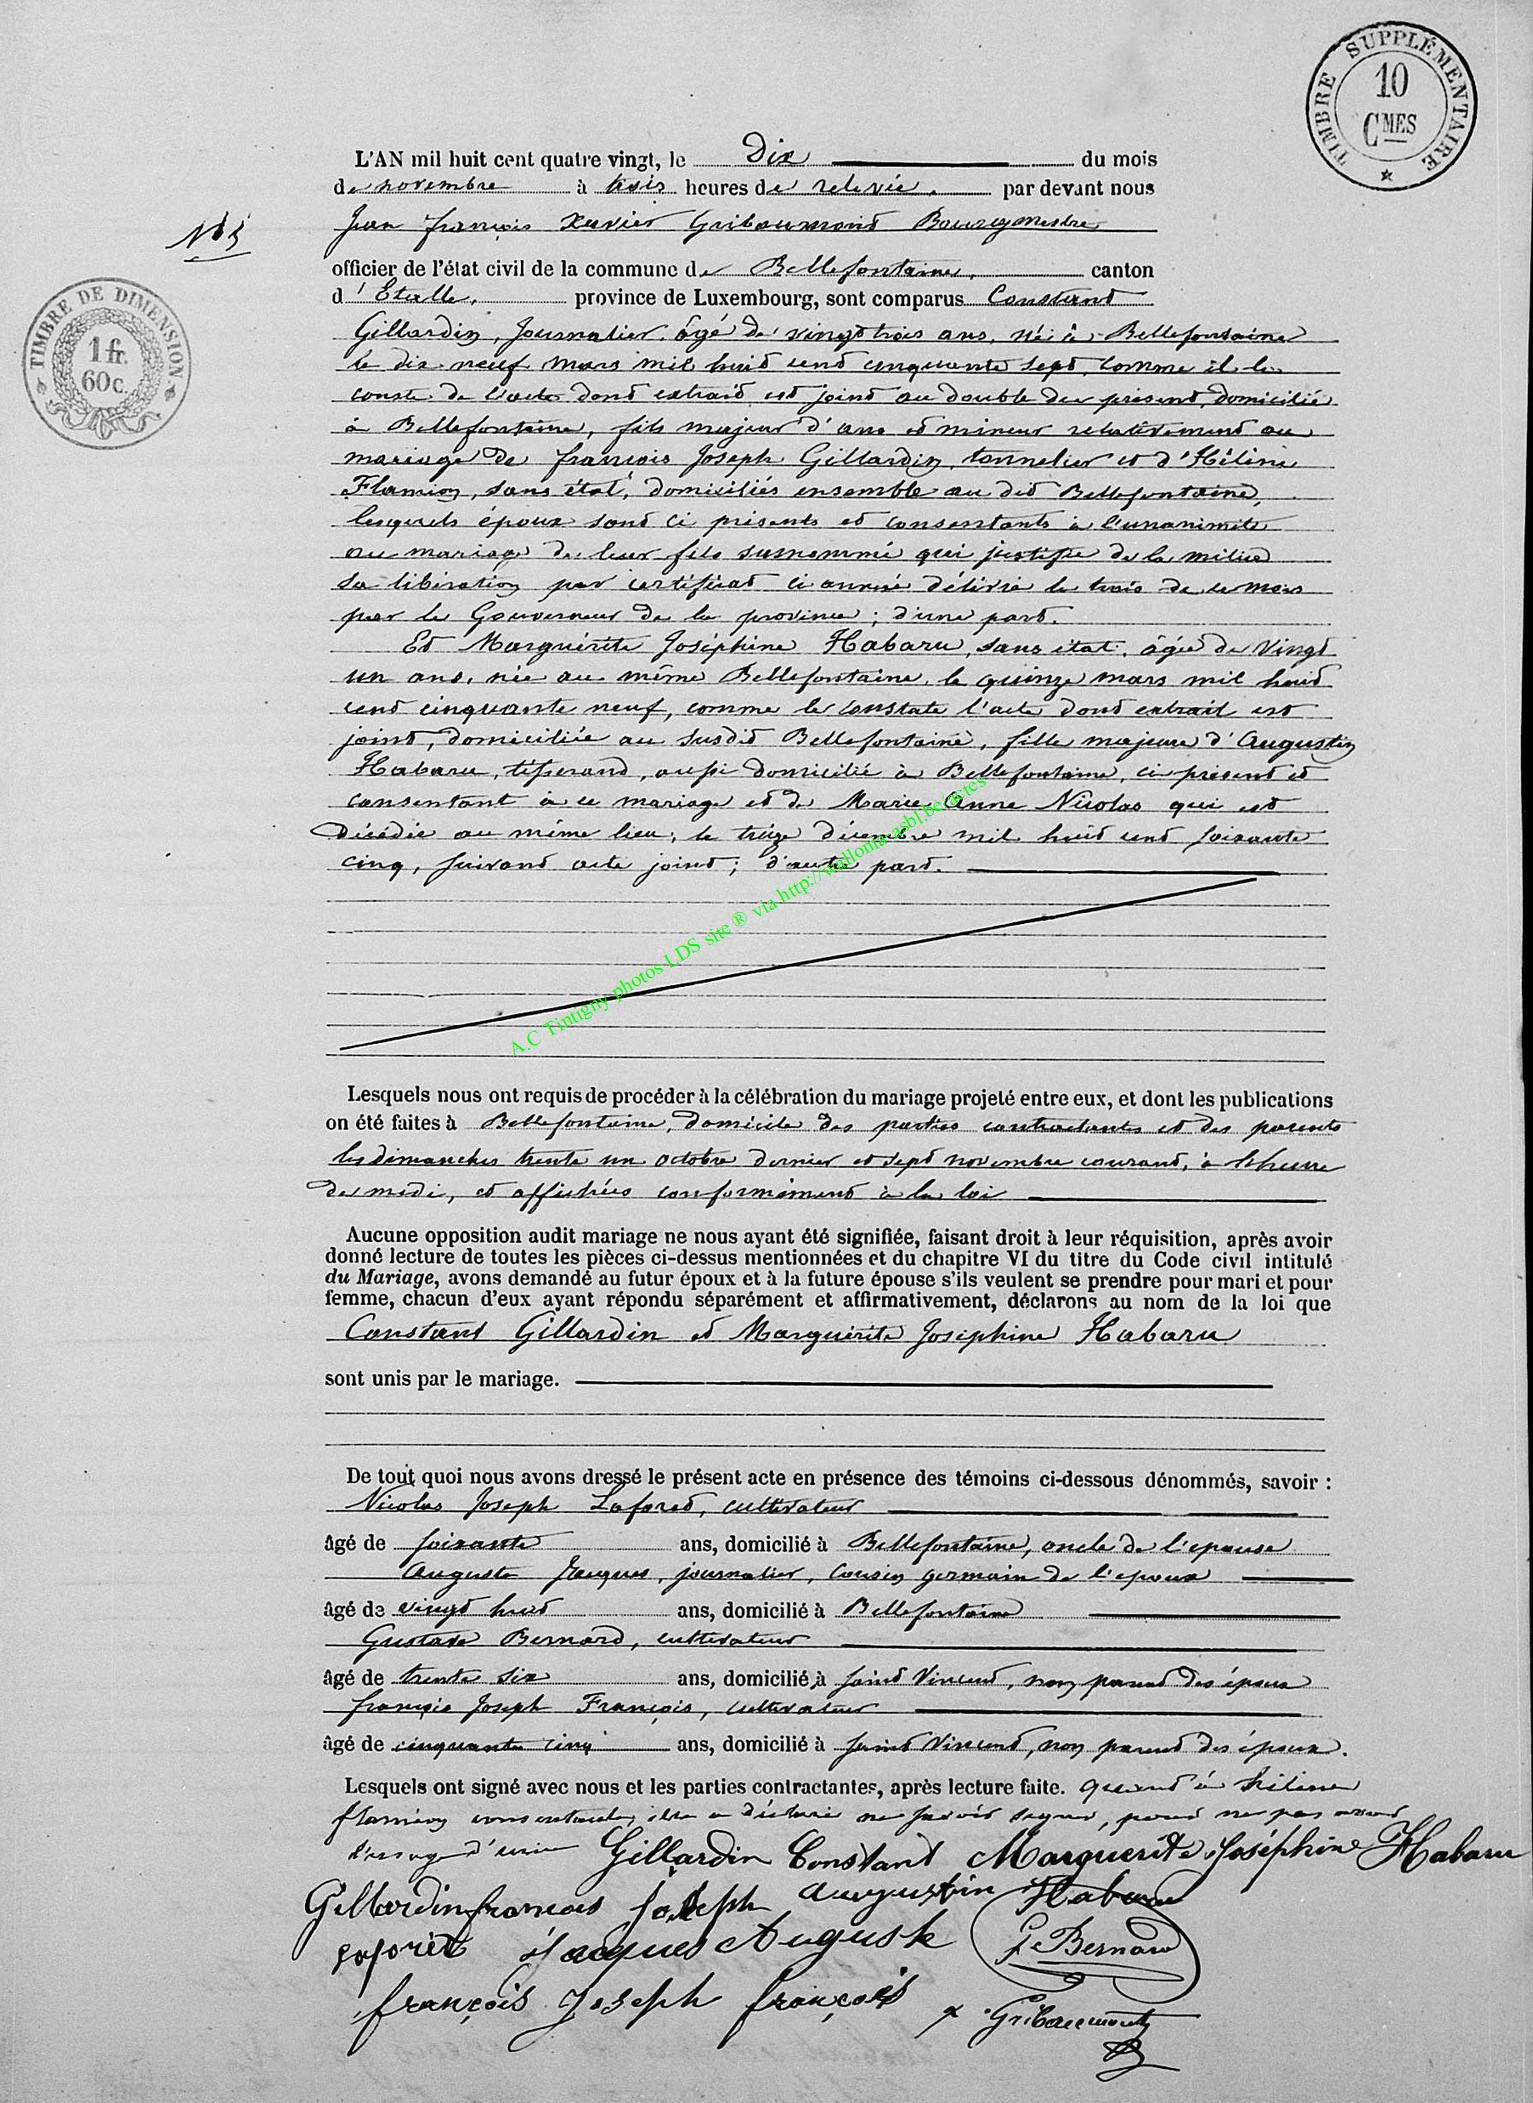 TIMBRE SUPPLÉMENTAIRE
10
CMES
L'AN mil huit cent quatre vingt, le Dix du mois
de novembre à trois heures de relevée. par devant nous
Jean françois Xavier Gribaumont Bourgmestre
officier de l'état civil de la commune de Bellefontaine, canton
d'Etalle, province de Luxembourg, sont comparus Constant
TIMBRE DE DIMENSION
1 fr.
60 c.
Gillardin, Journalier, âgé de vingt trois ans, né à Bellefontaine
le dix neuf mars mil huit cent cinquante sept, comme il le
conste de l'acte dont extrait est joint au double du présent, domicilié
à Bellefontaine, fils majeur d'ans et mineur relativement au
mariage de françois Joseph Gillardin, tonnelier et d'Hélène
Flamion, sans état, domiciliés ensemble au dit Bellefontaine,
lesquels époux sont ci présents et consentants à l'unanimité
au mariage de leur fils surnommé qui justifie de la milice
sa libération par certificat ci annexé délivré le trois de ce mois
par le Gouverneur de la province ; d'une part.
Et Marguérite Joséphine Habaru, sans état, âgée de Vingt
un ans, née au même Bellefontaine, le quinze mars mil huit
cent cinquante neuf, comme le constate l'acte dont extrait est
joint, domiciliée au susdit Bellefontaine, fille majeure d'Augustin
Habaru, tisserand, aussi domicilié à Bellefontaine, ci présent et
consentant à ce mariage et de Marie Anne Nicolas qui est
décédée au même lieu, le treize décembre mil huit cent soixante
cinq, suivant acte joint ; d'autre part.
A.C Tintigny photos LDS site ® via http://wallonia.asbl.be/actes
Lesquels nous ont requis de procéder à la célébration du mariage projeté entre eux, et dont les publications
on été faites à Bellefontaine, domicile des parties contractantes et des parents
les dimanches trente un octobre dernier et sept novembre courant, à l'heure
de midi, et affichées conformément à la loi
Aucune opposition audit mariage ne nous ayant été signifiée, faisant droit à leur réquisition, après avoir
donné lecture de toutes les pièces ci-dessus mentionnées et du chapitre VI du titre du Code civil intitulé
du Mariage, avons demandé au futur époux et à la future épouse s'ils veulent se prendre pour mari et pour
femme, chacun d'eux ayant répondu séparément et affirmativement, déclarons au nom de la loi que
Constant Gillardin et Marguérite Joséphine Habaru
sont unis par le mariage.
De tout quoi nous avons dressé le présent acte en présence des témoins ci-dessous dénommés, savoir :
Nicolas Joseph Laforet, cultivateur
âgé de soixante ans, domicilié à Bellefontaine, oncle de l'épouse
Auguste Jacques, journalier, cousin germain de l'époux
âgé de vingt huit ans, domicilié à Bellefontaine
Gustave Bernard, cultivateur
âgé de trente six ans, domicilié à Saint Vincent, non parent des époux
françois Joseph François, cultivateur
âgé de cinquante cinq ans, domicilié à Saint Vincent, non parent des époux.
Lesquels ont signé avec nous et les parties contractantes, après lecture faite. Quant à hélène
flamion consentante, elle a déclaré ne savoir signer, pour ne pas avoir
l'usage d'écrire Gillardin Constant Marguerite Joséphine Habaru
Gillardin francois Joseph Augustin Habaru
Laforêt Jacques Auguste G Bernard
françois Joseph françois x Gribaumont